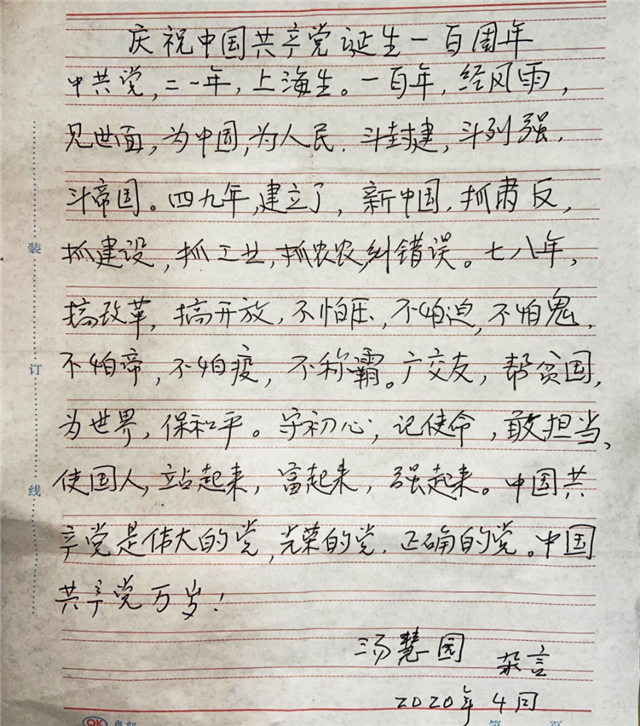 庆祝中国共产党诞生一百周年
中共党,二一年,上海生。一百年,经风雨,
见世面,为中国,为人民.斗封建,斗列强,
斗帝国。四九年,建立了,新中国,抓肃反,
装
抓建设,抓工业,抓农农,纠错误。七八年,
搞改革,搞开放,不怕压,不怕迫,不怕鬼,
订
不怕帝,不怕疫,不称霸。广交友,帮贫国,
为世界,保和平。守初心,记使命,敢担当、
线
使国人,站起来,富起来,强起来。中国共
产党是伟大的党,光荣的党.正确的党。中国
共产党万岁!
汤慧园 杂言
2020年4月
OK 第 页